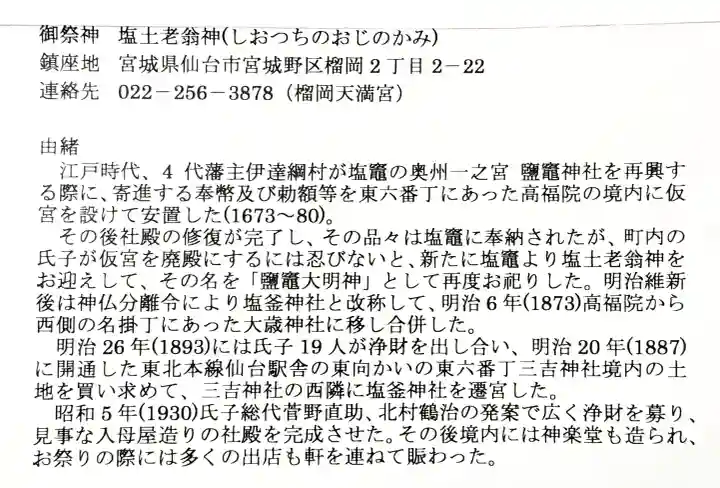 御祭神　塩土老翁神(しおつちのおじのかみ)
鎮座地　宮城県仙台市宮城野区榴岡２丁目２−22
連絡先　022−256−3878（榴岡天満宮）
由緒
江戸時代、４ 代藩主伊達綱村が塩竈の奥州一之宮 鹽竈神社を再興す
る際に、寄進する奉幣及び勅額等を東六番丁にあった高福院の境内に仮
宮を設けて安置した(1673〜80)。
その後社殿の修復が完了し、その品々は塩竈に奉納されたが、町内の
氏子が仮宮を廃殿にするには忍びないと、新たに塩竈より塩土老翁神を
お迎えして、その名を「鹽竈大明神」として再度お祀りした。明治維新
後は神仏分離令により塩釜神社と改称して、明治６年(1873)高福院から
西側の名掛丁にあった大歳神社に移し合併した。
明治 26 年(1893)には氏子 19 人が浄財を出し合い、明治 20 年(1887)
に開通した東北本線仙台駅舎の東向かいの東六番丁三吉神社境内の土
地を買い求めて、三吉神社の西隣に塩釜神社を遷宮した。
昭和５年(1930)氏子総代菅野直助、北村鶴治の発案で広く浄財を募り、
見事な入母屋造りの社殿を完成させた。その後境内には神楽堂も造られ、
お祭りの際には多くの出店も軒を連ねて賑わった。